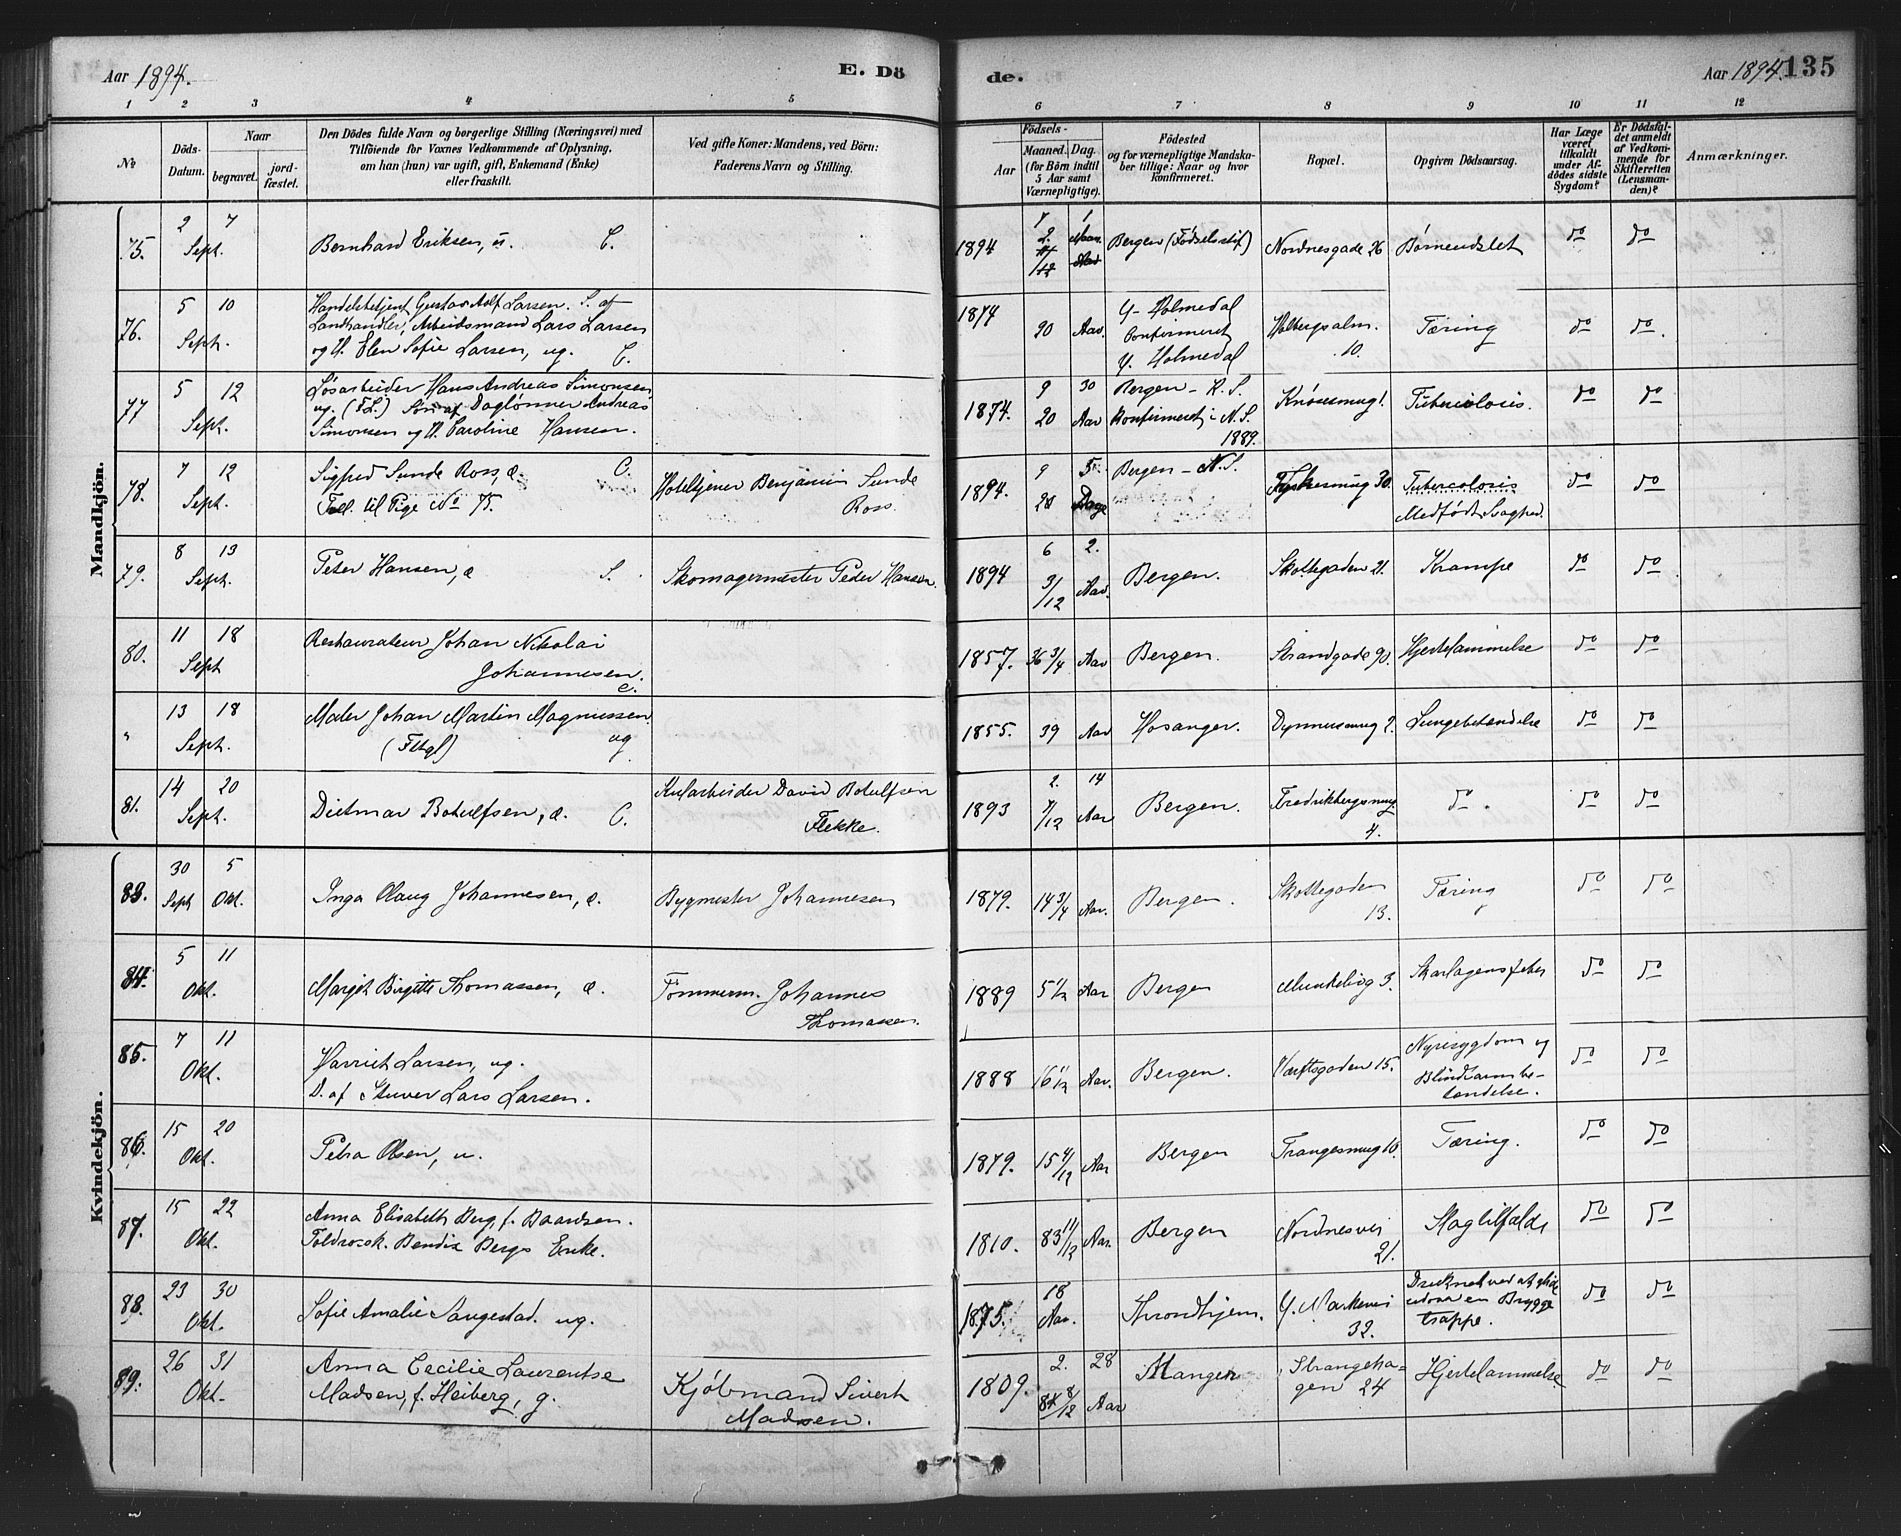 Aar 1894.
E. Dö
de.
Aar 1894. 135
1 2 3 4 5 6 7 8 9 10 11 12
No
Döds-
Datum.
Naar
begravet.
jord-
fæstet.
Den Dödes fulde Navn og borgerlige Stilling (Næringsvei) med
Tilföiende for Voxnes Vedkommende af Oplysning,
om han (hun) var ugift, gift, Enkemand (Enke)
eller fraskilt.
Ved gifte Koner: Mandens, ved Börn:
Faderens Navn og Stilling.
Födsels-
Aar
Maaned. Dag.
(for Börn indtil
5 Aar samt
Værnepligtige).
Födested
og for værnepligtige Mandska-
ber tillige: Naar og hvor
konfirmeret.
Bopæl.
Opgiven Dödsaarsag.
Har Læge
været
tilkaldt
under Af-
dödes sidste
Sygdom?
Er Dödsfal-
det anmeldt
af Vedkom-
mende for
Skifteretten
(Lensman-
den)?
Anmærkninger.
Mandkjön.
75. 2 Sept. 7
Bernhard Eriksen, u. C.
1894 Bergen (Fødselsstif) Nordnesgade 26 Børneudslet do do
76. 5 Sept. 10
Handelsbetjent Gustav Adlf Larsen. S. af
Landhandler, Arbeidsmand Lars Larsen
og H. Elen Sofie Larsen, ug. C.
1874 20 Aar
Y. Holmedal
Confirmeret
Y. Holmedal
Holbergsalm.
10.
Tæring do do.
77 5 Sept. 12
Løsarbeider Hans Andreas Simonsen
ug. (F.L.) Søn af Daglønner Andreas
Simonsen og H. Caroline Hansen.
1874. 9 30
20 Aar
Bergen - K. S.
Konfirmeret i N. S.
1889.
Knøsesmug 1. Tuberculosis. do do
78. 7 Sept. 12
Sigfred Sunde Ross, æ. C.
Tvil. til Pige No 75.
Hoteltjener Benjamin Sunde
Ross.
1894. 9 5
28 Dage
Bergen - N. S.
30. Tuberculosis
Medfødt Svaghed. do do
79. 8 Sept. 13
Peter Hansen, æ S.
Skomagermester Peder Hansen.
1894 6 2.
3/12 Aar.
Bergen. Skottegaden 21. Krampe do do
80. 11 Sept 18
Restaurateur Johan Nikolai
Johannesen.
e.
1857. 36 3/4 Aar Bergen. Strandgade 90. Hjertelammelse do do
" 13 Sept. 18
Maler Johan Martin Magnussen
(Fltgl) ug
1855. 39 Aar Hosanger. 2. Lungebetændelse do do
81. 14 Sept. 20
Dietmar Botulfsen, æ. C.
Kularbeider David Botulfsen
Flekke.
1893 2. 14
7/12 Aar
Bergen. Fredrikbergsmug.
4.
do. do do
Kvindekjön.
83. 30 Sept 5 Okt.
Inga Olaug Johannesen, æ.
Bygmester Johannesen
1879. 14 3/4 Aar. Bergen. Skottegaden
13.
Tæring do do
84. 5 Okt. 11
Margit Birgitte Thomassen, æ.
Tømmerm. Johannes
Thomassen.
1889 5 1/2 Aar Bergen Munkelivg 3. Skarlagensfeber do do
85. 7 Okt. 11
Harriet Larsen, ug.
D. af Stuver Lars Larsen.
1888 Aar. Bergen. Værftsgaden 15.
Nyresygdom og
Blindtarmbe-
tændelse. do do
86. 15 Okt. 20
Petra Olsen, u.
1879. 15 4/12 Aar Bergen Trangesmug 10. Tæring. do do
87. 15 Okt. 22
Anna Elisabeth Berg, f. Baardsen.
Toldrorsk. Bendix Bergs Enke.
1810. 83 11/12 Aar. Bergen Nordnesvei
21.
Slagtilfælde do do
88. 23 Okt. 30
Sofie Amalie Saugestad. ug.
1875. 18
Aar.
Throndhjem. Y. Markevei
32.
Druknet ved at glide
udover en Brygge
trappe. do do
89. 26 Okt. 31
Anna Cecilie Laurentse
Madsen, f. Heiberg, g.
Kjøbmand Sivert
Madsen.
1809. 2. 28
84 8/12 Aar
Manger Strangeha-
gen 24 Hjertelammelse do do